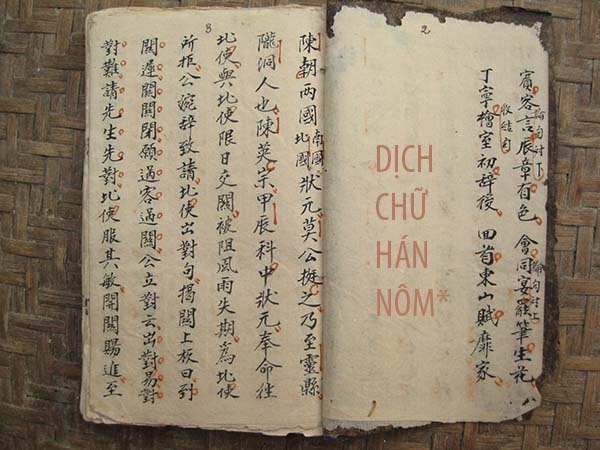 2
賓客言辰章有色 會同宴罷筆生花
收結句
丁寧檜室初辭後 回首東山賦靡家
DỊCH
CHỮ
HÁN
NÔM*
3
陳朝兩國南國北國狀元莫公挺之乃至靈縣
隴洞人也陳英宗甲辰科中狀元奉命往
北使與北使限日交關被阻風雨失期為北使
所拒公婉辭致請北使出對句揭關上板曰到
關遲關關閉願過客過關公立對云出對易對
對難請先生先對北使服其敏開關賜進至